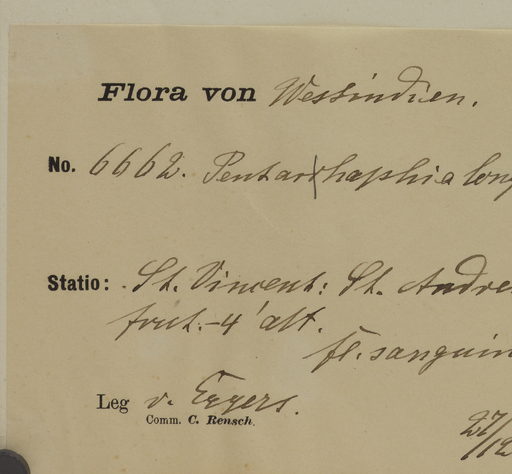 Flora von Westindien.
No. 6662. Pentarrhaphia long
Statio: St. Vincent: St. Andre
frut. -4' alt.
fl. sanguin
Leg v. Eggers.
Comm. C. Rensch.
27/12